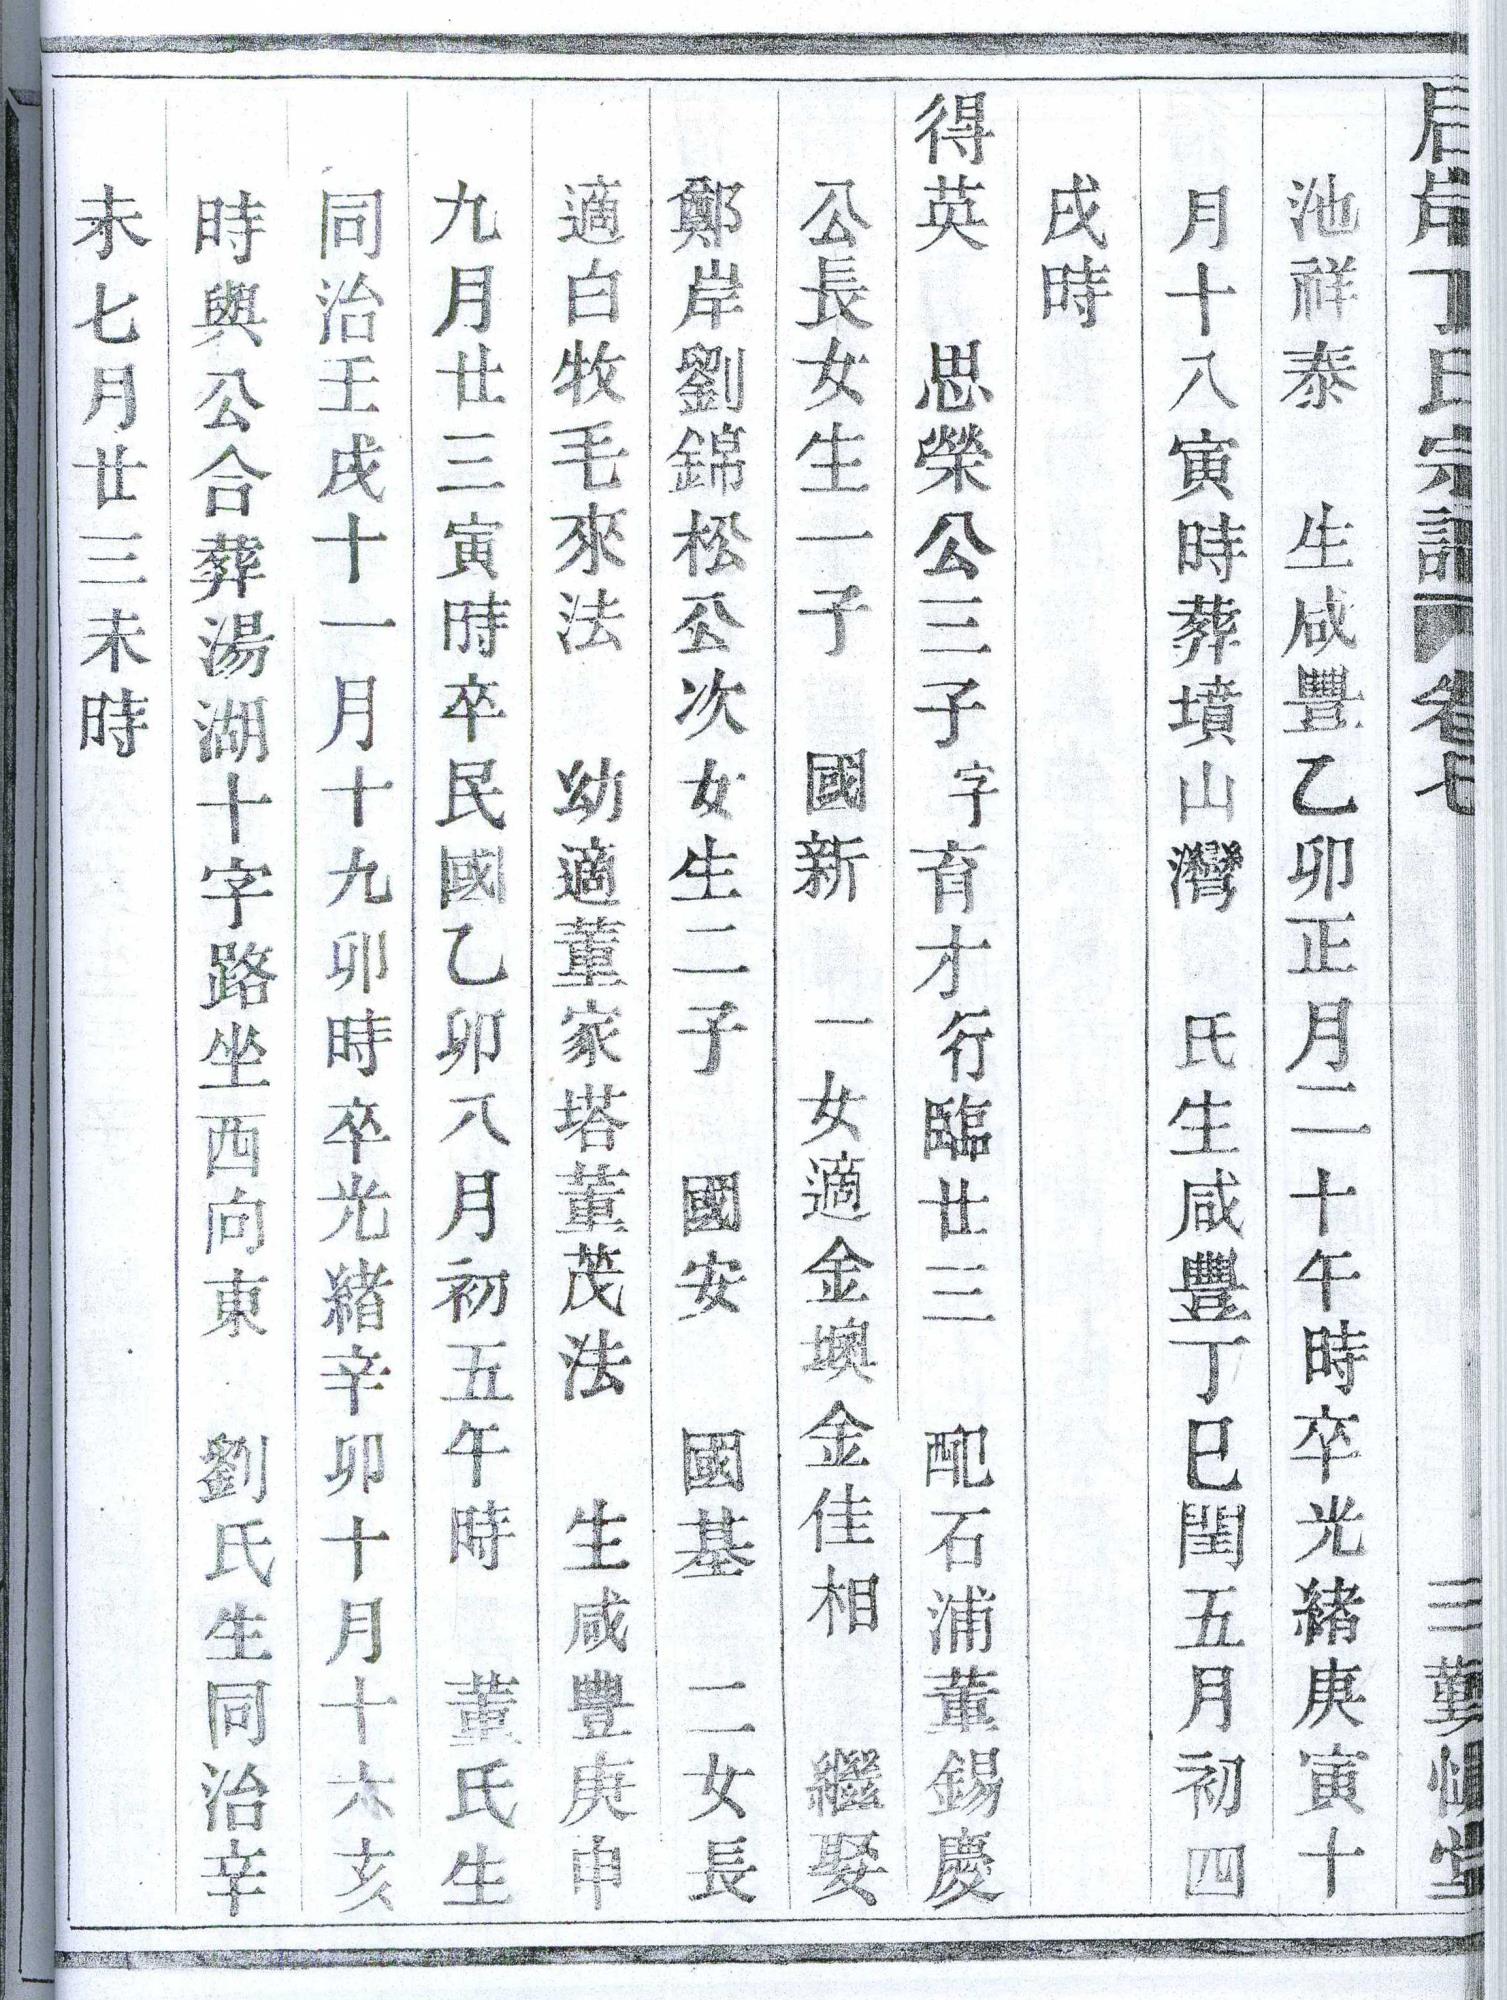 后岸丁氏宗譜 卷七 三 勤慎堂
池祥泰 生咸豐乙卯正月二十午時卒光緒庚寅十
月十八寅時葬墳山灣 氏生咸豐丁巳閏五月初四
戌時
得英 思榮公三子字育才行臨廿三 配石浦董錫慶
公長女生一子 國新 一女適金墺金佳相 繼娶
鄭岸劉錦松公次女生二子 國安 國基 二女長
適白牧毛來法 幼適董家塔董茂法 生咸豐庚申
九月廿三寅時卒民國乙卯八月初五午時 董氏生
同治壬戌十一月十九卯時卒光緒辛卯十月十六亥
時與公合葬湯湖十字路坐西向東 劉氏生同治辛
未七月廿三未時